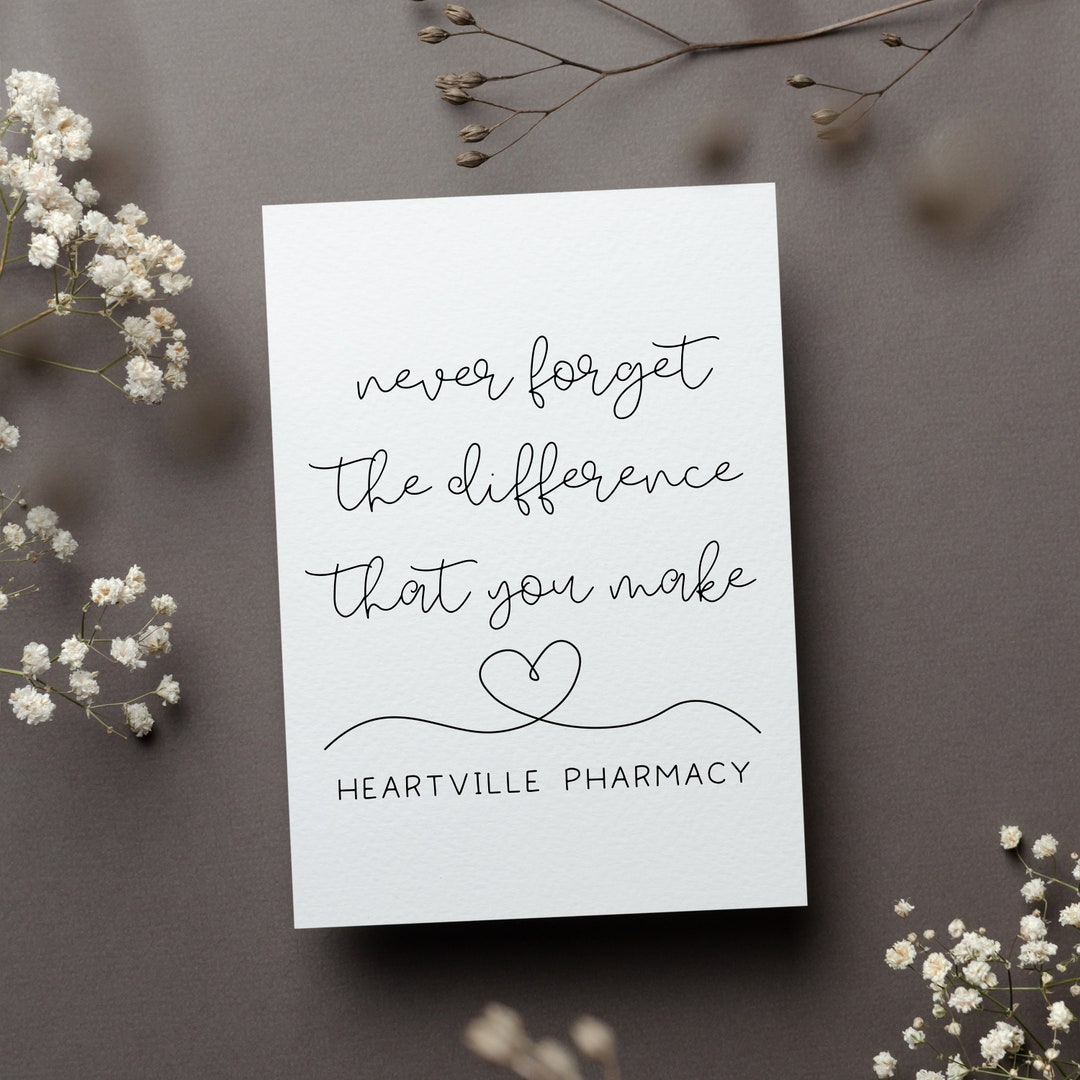 never forget
the difference
that you make
HEARTVILLE PHARMACY